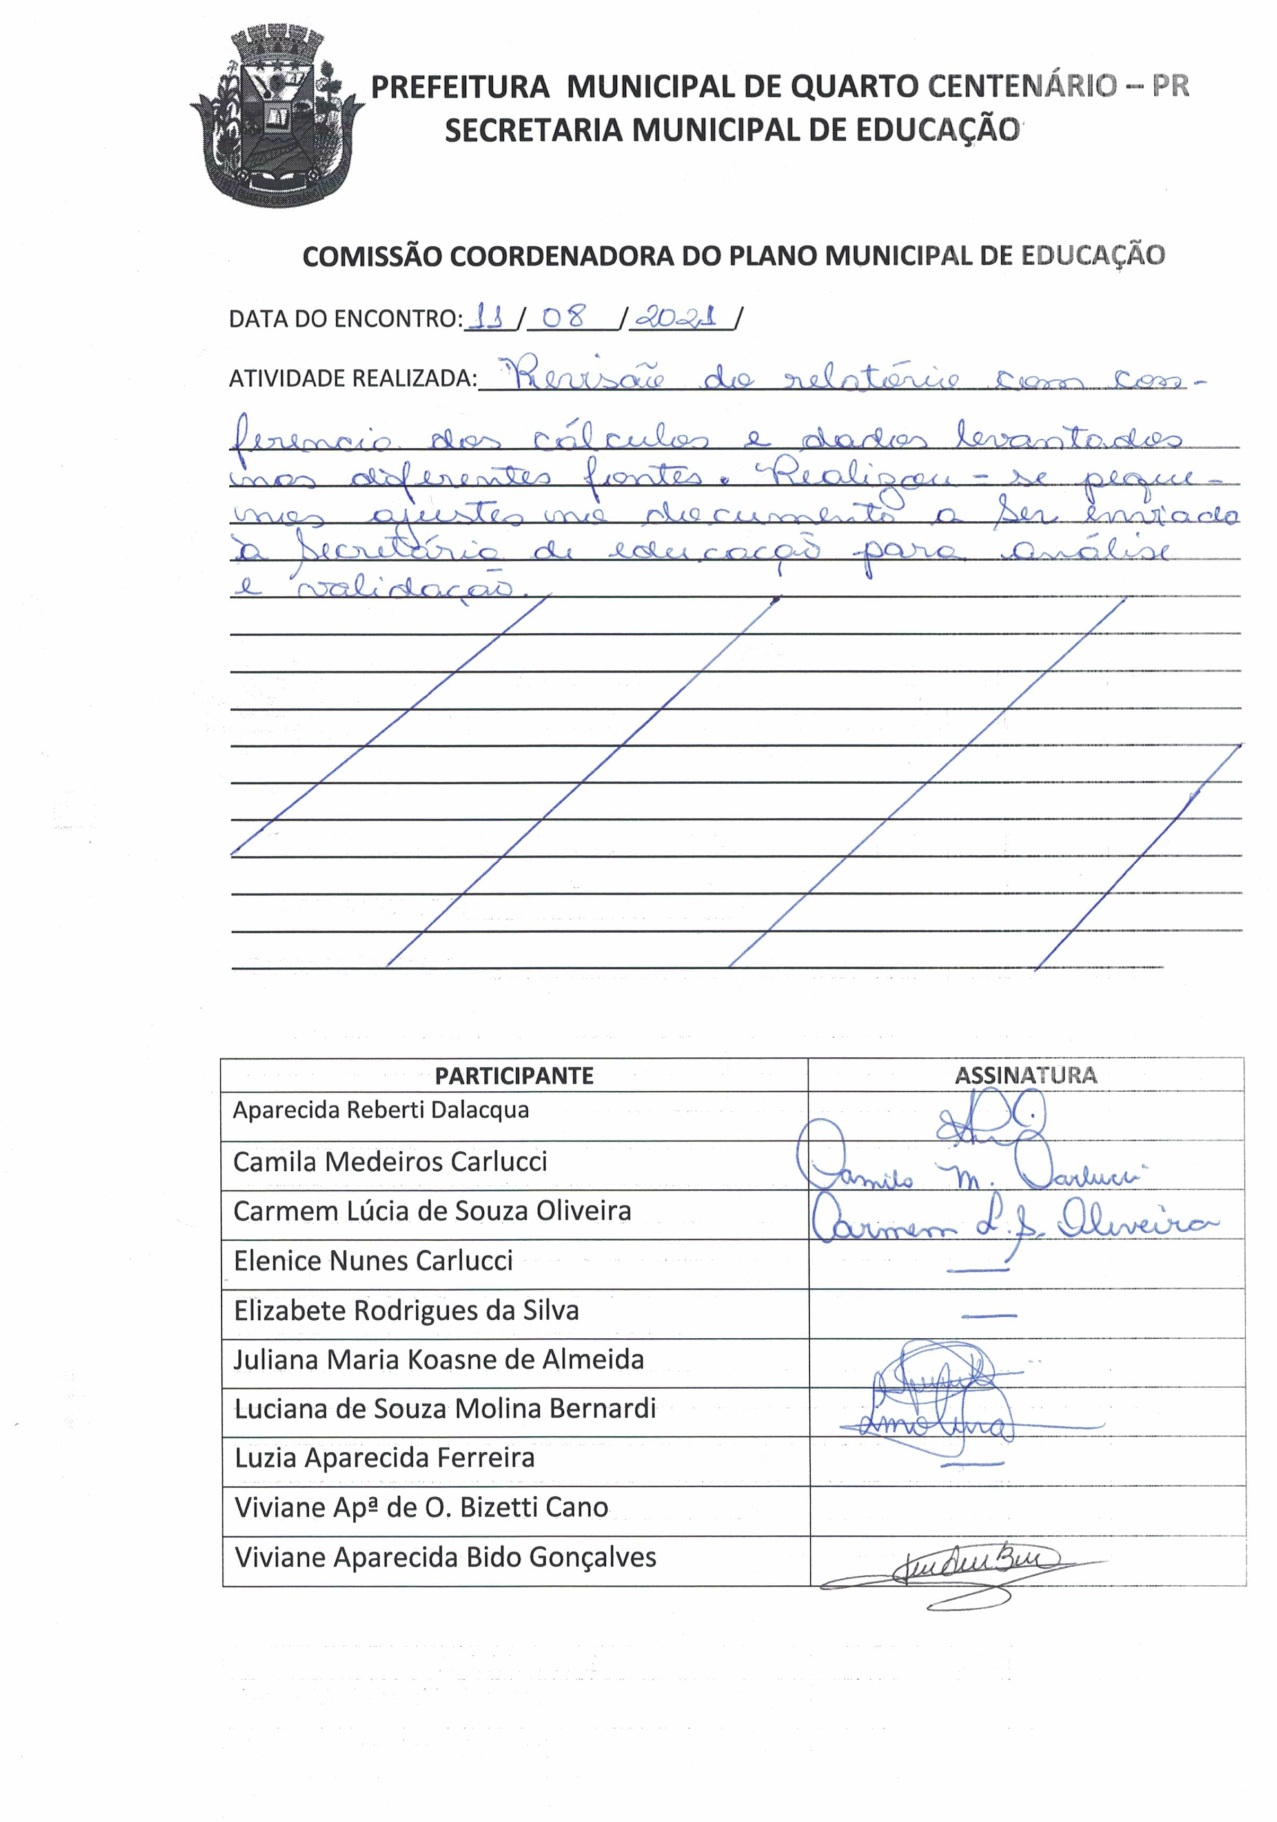 PREFEITURA MUNICIPAL DE QUARTO CENTENÁRIO – PR
SECRETARIA MUNICIPAL DE EDUCAÇÃO
QUARTO CENTENÁRIO
COMISSÃO COORDENADORA DO PLANO MUNICIPAL DE EDUCAÇÃO
DATA DO ENCONTRO: 11 / 08 / 2021 /
ATIVIDADE REALIZADA: Revisão do relatório com con-
ferencia dos cálculos e dados levantados
nas diferentes fontes. Realizou-se peque-
nos ajustes no documento a ser enviado
à Secretária de educação para análise
e validação.
PARTICIPANTE ASSINATURA
Aparecida Reberti Dalacqua
Camila Medeiros Carlucci Camila M. Carlucci
Carmem Lúcia de Souza Oliveira Carmem L. S. Oliveira
Elenice Nunes Carlucci —
Elizabete Rodrigues da Silva —
Juliana Maria Koasne de Almeida
Luciana de Souza Molina Bernardi LMolina
Luzia Aparecida Ferreira —
Viviane Apª de O. Bizetti Cano
Viviane Aparecida Bido Gonçalves